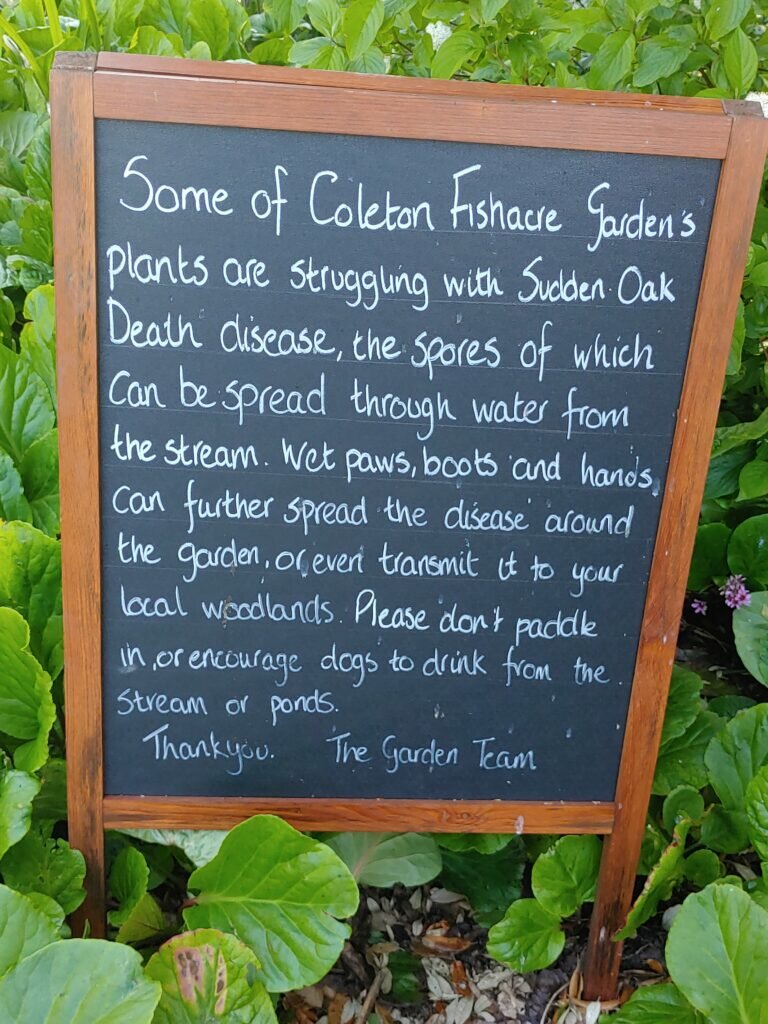 Some of Coleton Fishacre Garden's
plants are struggling with Sudden Oak
Death disease, the spores of which
can be spread through water from
the stream. Wet paws, boots and hands
can further spread the disease around
the garden, or even transmit it to your
local woodlands. Please don't paddle
in, or encourage dogs to drink from the
stream or ponds.
Thankyou. The Garden Team